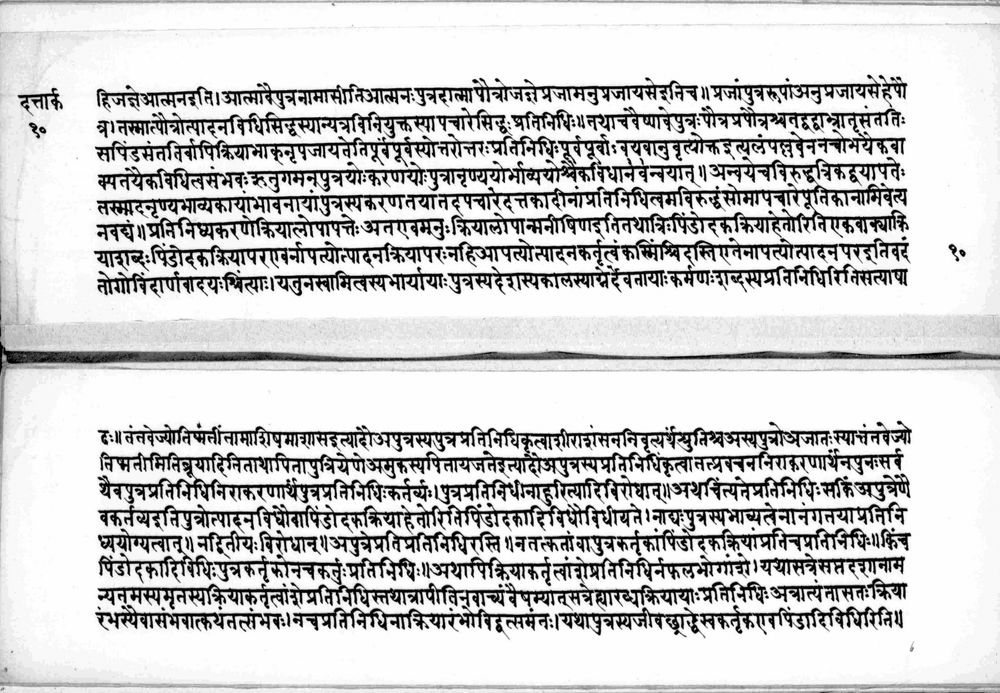 दत्तार्क
१०
हिजज्ञेआत्मनइति।आत्मावैपुत्रनामासीतिआत्मनःपुत्रदात्मापौत्रोजज्ञेप्रजामनुप्रजायसेइतिच॥प्रजांपुत्ररूपांअनुप्रजायसेहेपौ
त्र।तस्मात्पौत्रोत्पादनविधिसिद्धस्यान्यत्रविनियुक्तस्यापचारेसिद्धःप्रतिनिधिः॥तथाचवैष्णवेपुत्रःपौत्रप्रपौत्रश्चतद्वद्वाभ्रातृसंततिः
सपिंडसंततिर्वापिक्रियाभाक्नृपजायतेतिपूर्वपूर्वस्योत्तरोत्तरःप्रतिनिधिःपूर्वपूर्वाऽवयवानुवृत्त्योक्तइत्यलंपल्लवेननचोभयैकवा
क्यतयैकविधित्वसंभवःऋतुगमनपुत्रयोःकरणयोःपुत्रानृण्ययोर्भाव्ययोश्चैकविधानेवन्वयात्॥अन्वयेचविरुद्धत्रिकद्वयापत्तेः
तस्मादनृण्यभाव्यकायांभावनायांपुत्रस्यकरणतयातदपचारेदत्तकादीनांप्रतिनिधित्वमविरुद्धंसोमापचारेपूतिकानामिवेत्य
नवद्यं॥प्रतिनिध्यकरणेक्रियालोपापत्तेःअतएवमनुःक्रियालोपान्मनीषिणइतितथात्रिःपिंडोदकक्रियाहेतोरितिएकवाक्याक्रि
याशब्दःपिंडोदकक्रियापरएवनापत्योत्पादनक्रियापरःनहिआपत्योत्पादनकर्तृत्वंकस्मिंश्चिदस्तिएतेनापत्योत्पादनपरइतिवदं
१०
तोगोविंदार्णवादयःश्चिंत्याः।यत्तुनस्वामित्वस्यभार्यायाःपुत्रस्यदेशस्यकालस्याग्नेर्देवतायाःकर्मणःशब्दस्यप्रतिनिधिरितिसत्याषा
ढः॥तंतवेज्योतिष्मतींतामाशिषमाशासइत्यादौअपुत्रस्यपुत्रप्रतिनिधिकृत्वाशीराशंसननिवृत्यर्थश्रुतिश्चअस्यपुत्रोअजातःस्यात्तंतवेज्यो
तिष्मतीमितिब्रूयादितितथापितापुत्रियेणेअमुकस्यपितायजतेइत्यादौअपुत्रस्यप्रतिनिधिंकृत्वातत्प्रवचननिराकरणार्थनपुनःसर्व
थैवपुत्रप्रतिनिधिनिराकरणार्थपुत्रप्रतिनिधिःकर्तव्यः।पुत्रप्रतिनिधीनाहुरित्यादिविरोधात्॥अथचिंत्यतेप्रतिनिधिःसकिंअपुत्रेणै
वकर्तव्यइतिपुत्रोत्पादनविधौवापिंडोदकक्रियाहेतोरितिपिंडोदकादिविधौविधीयते।नाद्यःपुत्रस्यभाव्यत्वेनानंगतयाप्रतिनि
ध्ययोग्यत्वात्॥नद्वितीयःविरोधात्॥अपुत्रंप्रतिप्रतिनिधिरस्ति॥नतत्कर्तावापुत्रकर्तृकांपिंडोदकक्रियांप्रतिचप्रतिनिधिः॥किंच
पिंडोदकादिविधिःपुत्रकर्तृकोनचकर्तुःप्रतिनिधिः॥अथापिक्रियाकर्तृत्वांशेप्रतिनिधिर्नफलभोगांशे।यथासत्रेसप्तदशानाम
न्यतमस्यमृतस्यक्रियाकर्तृत्वांशेप्रतिनिधिस्तथात्रापीतिनवाच्यंवैषम्यात्सत्रेह्यारब्धक्रियायाःप्रतिनिधिःअत्रात्यंतासतःक्रिया
रंभस्यैवासंभवात्कथंतत्संभवः।नचप्रतिनिधिनाक्रियारंभोविद्वत्संमतः।यथापुत्रस्यजीवच्छ्राद्धेस्वकर्तृकएवपिंडादिविधिरिति॥